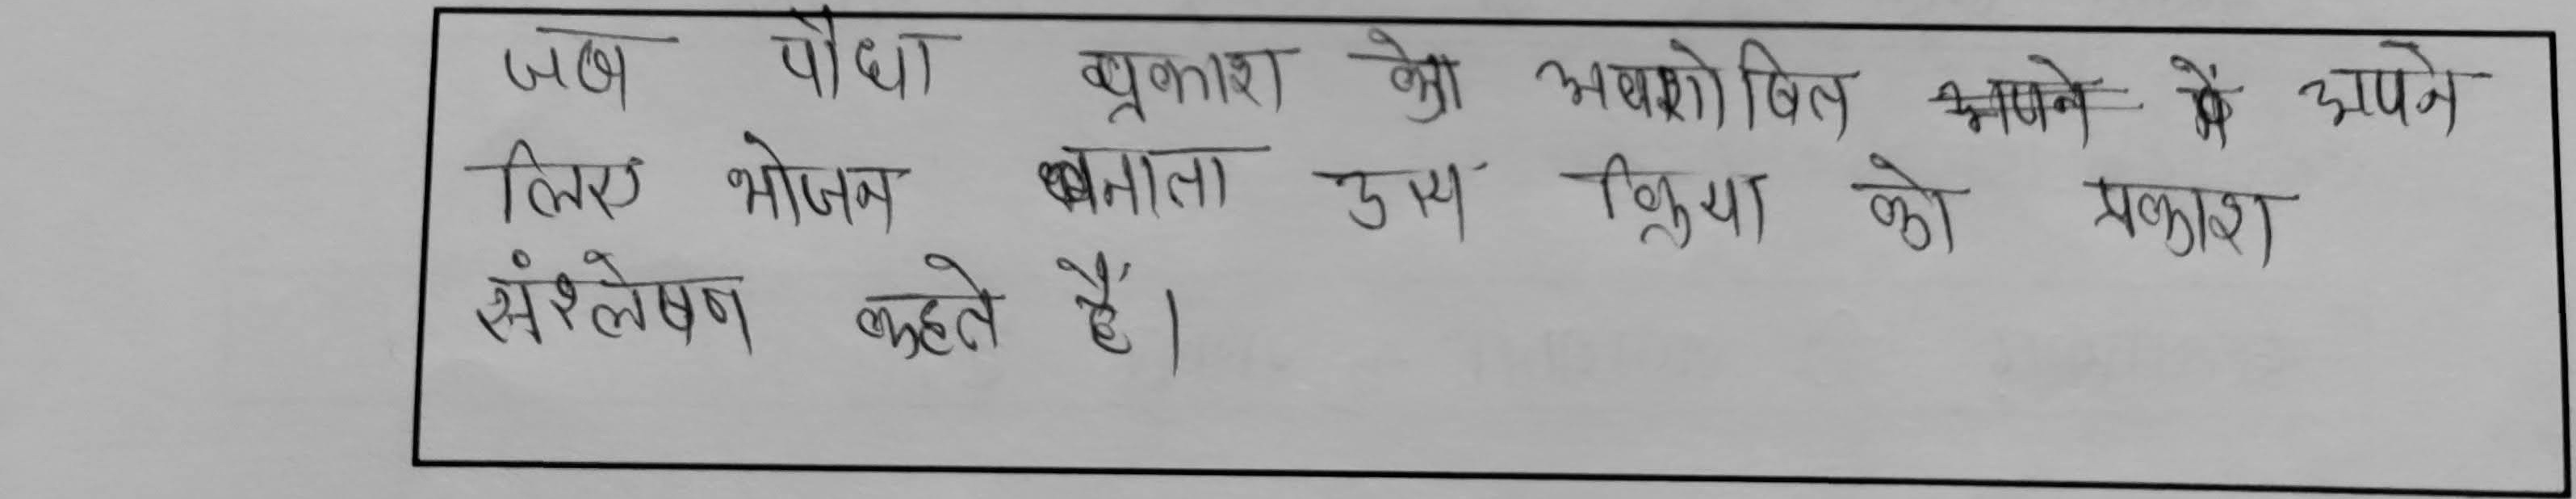 जब पौधा प्रकाश को अवशोषित में अपने
लिए भोजन बनाता उस क्रिया को प्रकाश
संश्लेषण कहते हैं।